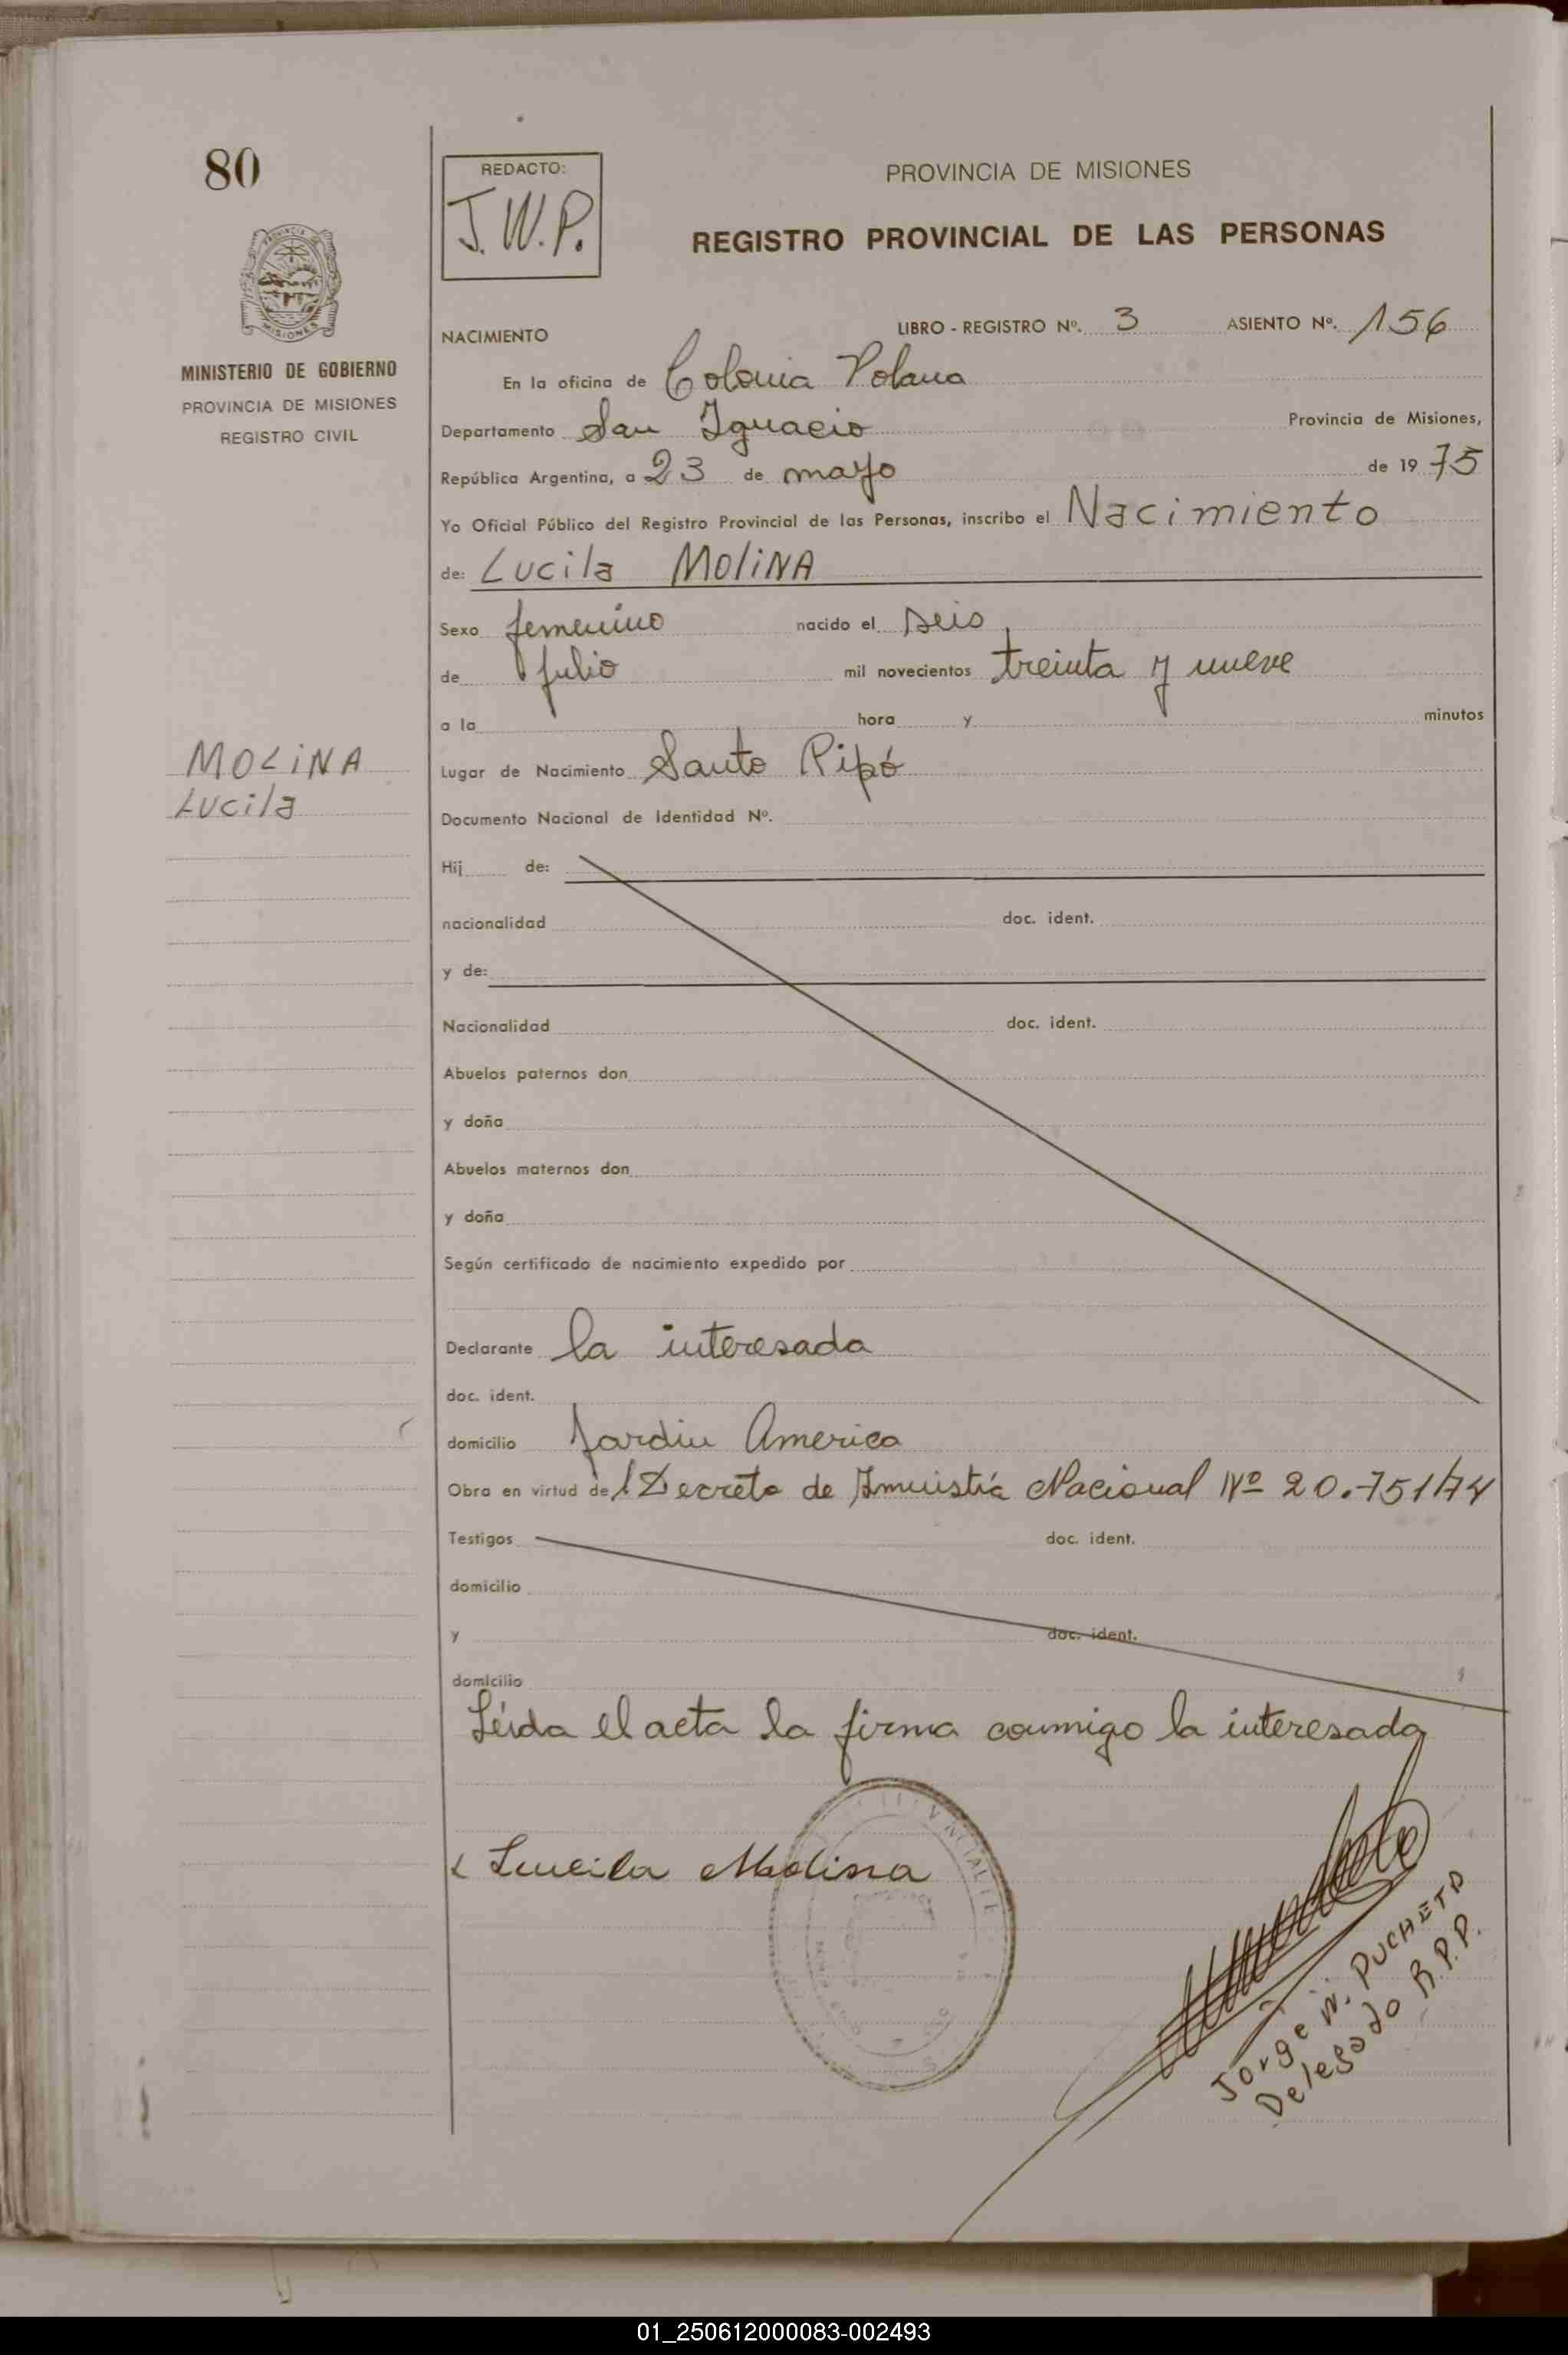 80
REDACTO:
J.W.P.
PROVINCIA DE MISIONES
REGISTRO PROVINCIAL DE LAS PERSONAS
MINISTERIO DE GOBIERNO
PROVINCIA DE MISIONES
REGISTRO CIVIL
NACIMIENTO
LIBRO - REGISTRO Nº. 3 ASIENTO Nº. 156
En la oficina de Colonia Polana
Departamento San Ignacio Provincia de Misiones,
República Argentina, a 23 de mayo de 19 75
Yo Oficial Público del Registro Provincial de las Personas, inscribo el Nacimiento
de: Lucila MOLINA
Sexo femenino nacido el seis
de julio mil novecientos treinta y nueve
a la hora y minutos
MOLINA
Lucila
Lugar de Nacimiento Santo Pipó
Documento Nacional de Identidad Nº.
Hij de:
nacionalidad doc. ident.
y de:
Nacionalidad doc. ident.
Abuelos paternos don
y doña
Abuelos maternos don
y doña
Según certificado de nacimiento expedido por
Declarante la interesada
doc. ident.
domicilio Jardin America
Obra en virtud de l Decreto de Amnistía Nacional Nº 20.751/74
Testigos doc. ident.
domicilio
y doc. ident.
domicilio
Leida el acta la firma conmigo la interesada
Lucila Molina
Jorge W. PUCHETA
Delegado R.P.P.
01_250612000083-002493